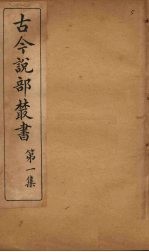 古今說部叢書
第一集